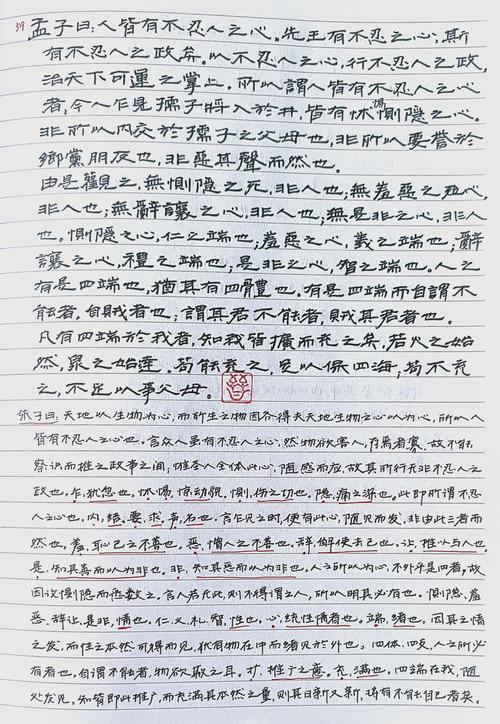 59 孟子曰：人皆有不忍人之心。先王有不忍人之心，斯
有不忍人之政矣。以不忍人之心，行不忍人之政，
治天下可運之掌上。所以謂人皆有不忍人之心
者，今人乍見孺子將入於井，皆有怵惕惻隱之心。
非所以內交於孺子之父母也，非所以要譽於
鄉黨朋友也，非惡其聲而然也。
由是觀之，無惻隱之心，非人也；無羞惡之心，
非人也；無辭讓之心，非人也；無是非之心，非人
也。惻隱之心，仁之端也；羞惡之心，義之端也；辭
讓之心，禮之端也；是非之心，智之端也。人之
有是四端也，猶其有四體也。有是四端而自謂不
能者，自賊者也；謂其君不能者，賊其君者也。
凡有四端於我者，知皆擴而充之矣，若火之始
然，泉之始達。苟能充之，足以保四海；苟不充
之，不足以事父母。
朱子曰：天地以生物为心，而所生之物因各得夫天地生物之心以为心，所以人
皆有不忍人之心也。言众人虽有不忍人之心，然物欲害人，存焉者寡，故不能
察识而推之政事之间；惟圣人全体此心，随感而应，故其所行无非不忍人之
政也。乍，犹忽也。怵惕，惊动貌，恻，伤之切也。隐，痛之深也。此即所谓不忍
人之心也。内，结。要，求。声，名也。言乍见之时，便有此心，随见而发，非由此三者而
然也。羞，耻己之不善也。恶，憎人之不善也。辞，解使去己也。让，推以与人也。
是，知其善而以为是也。非，知其恶而以为非也。人之所以为心，不外乎是四者，故
因论恻隐而悉数之。言人若无此，则不得谓之人，所以明其必有也。恻隐、羞
恶、辞让、是非，情也。仁、义、礼、智，性也。心，统性情者也。端，绪也。因其之情
之发，而性之本然可得而见，犹有物在中而绪见于外也。四体，四支，人之所必
有者也。自谓不能者，物欲蔽之耳。扩，推广之意。充，满也。四端在我，随
处发见。知皆即此推广，而充满其本然之量，则其日新又新，将有不能自已者矣。